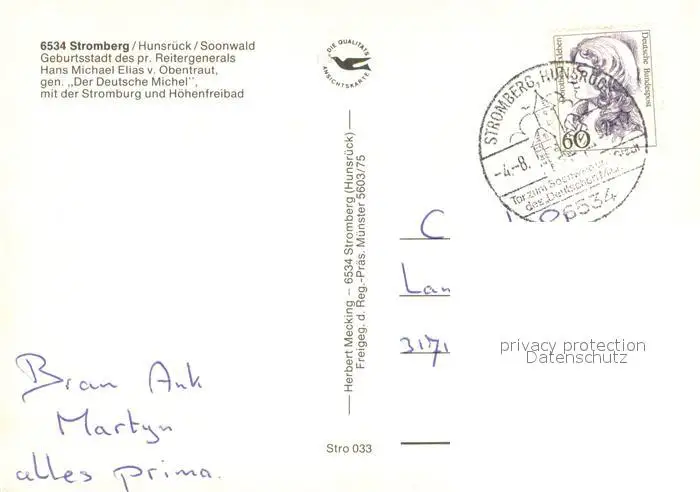 6534 Stromberg / Hunsrück / Soonwald
Geburtsstadt des pr. Reitergenerals
Hans Michael Elias v. Obentraut,
gen. „Der Deutsche Michel",
mit der Stromburg und Höhenfreibad
DIE QUALITÄTS
ANSICHTSKARTE
Herbert Mecking – 6534 Stromberg (Hunsrück)
Freigeg. d. Reg.-Präs. Münster 5603/75
Stro 033
Deutsche Bundespost
60
STROMBERG, HUNSRÜCK
-4.-8.
Tor zum Soonwald
des „Deutschen
6534
C
Lan
3171
privacy protection
Datenschutz
Martyn
alles prima.